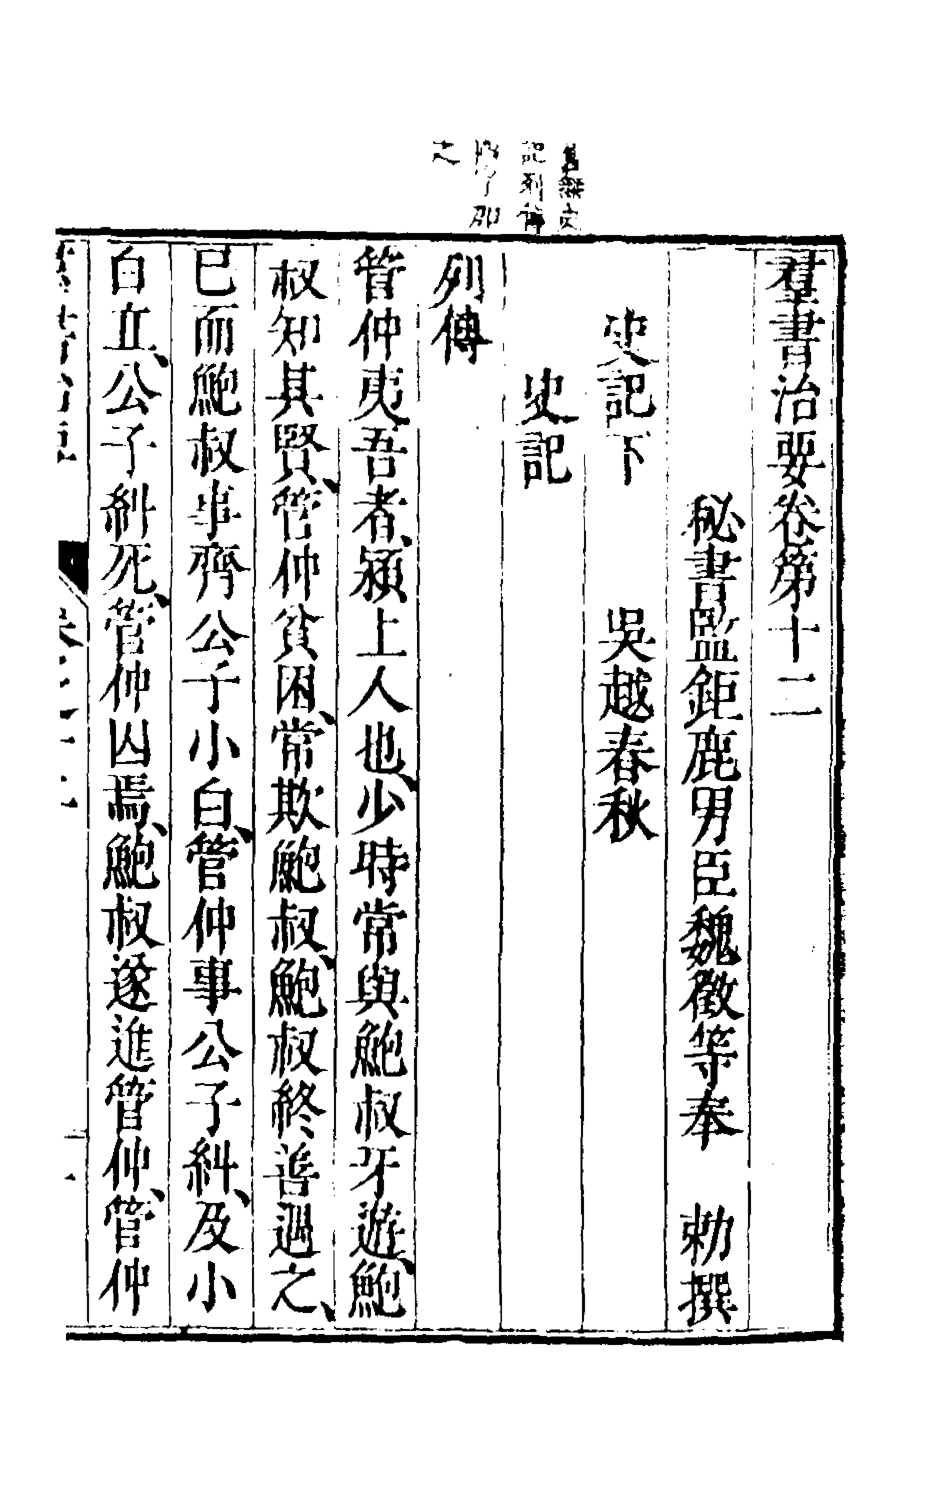 羣書治要卷第十二
秘書監鉅鹿男臣魏徵等奉 勅撰
史記下 吳越春秋
史記
列傳
管仲夷吾者、潁上人也、少時常與鮑叔牙遊、鮑
叔知其賢、管仲貧困、常欺鮑叔、鮑叔終善遇之、
已而鮑叔事齊公子小白、管仲事公子糾、及小
白立、公子糾死、管仲囚焉、鮑叔遂進管仲、管仲